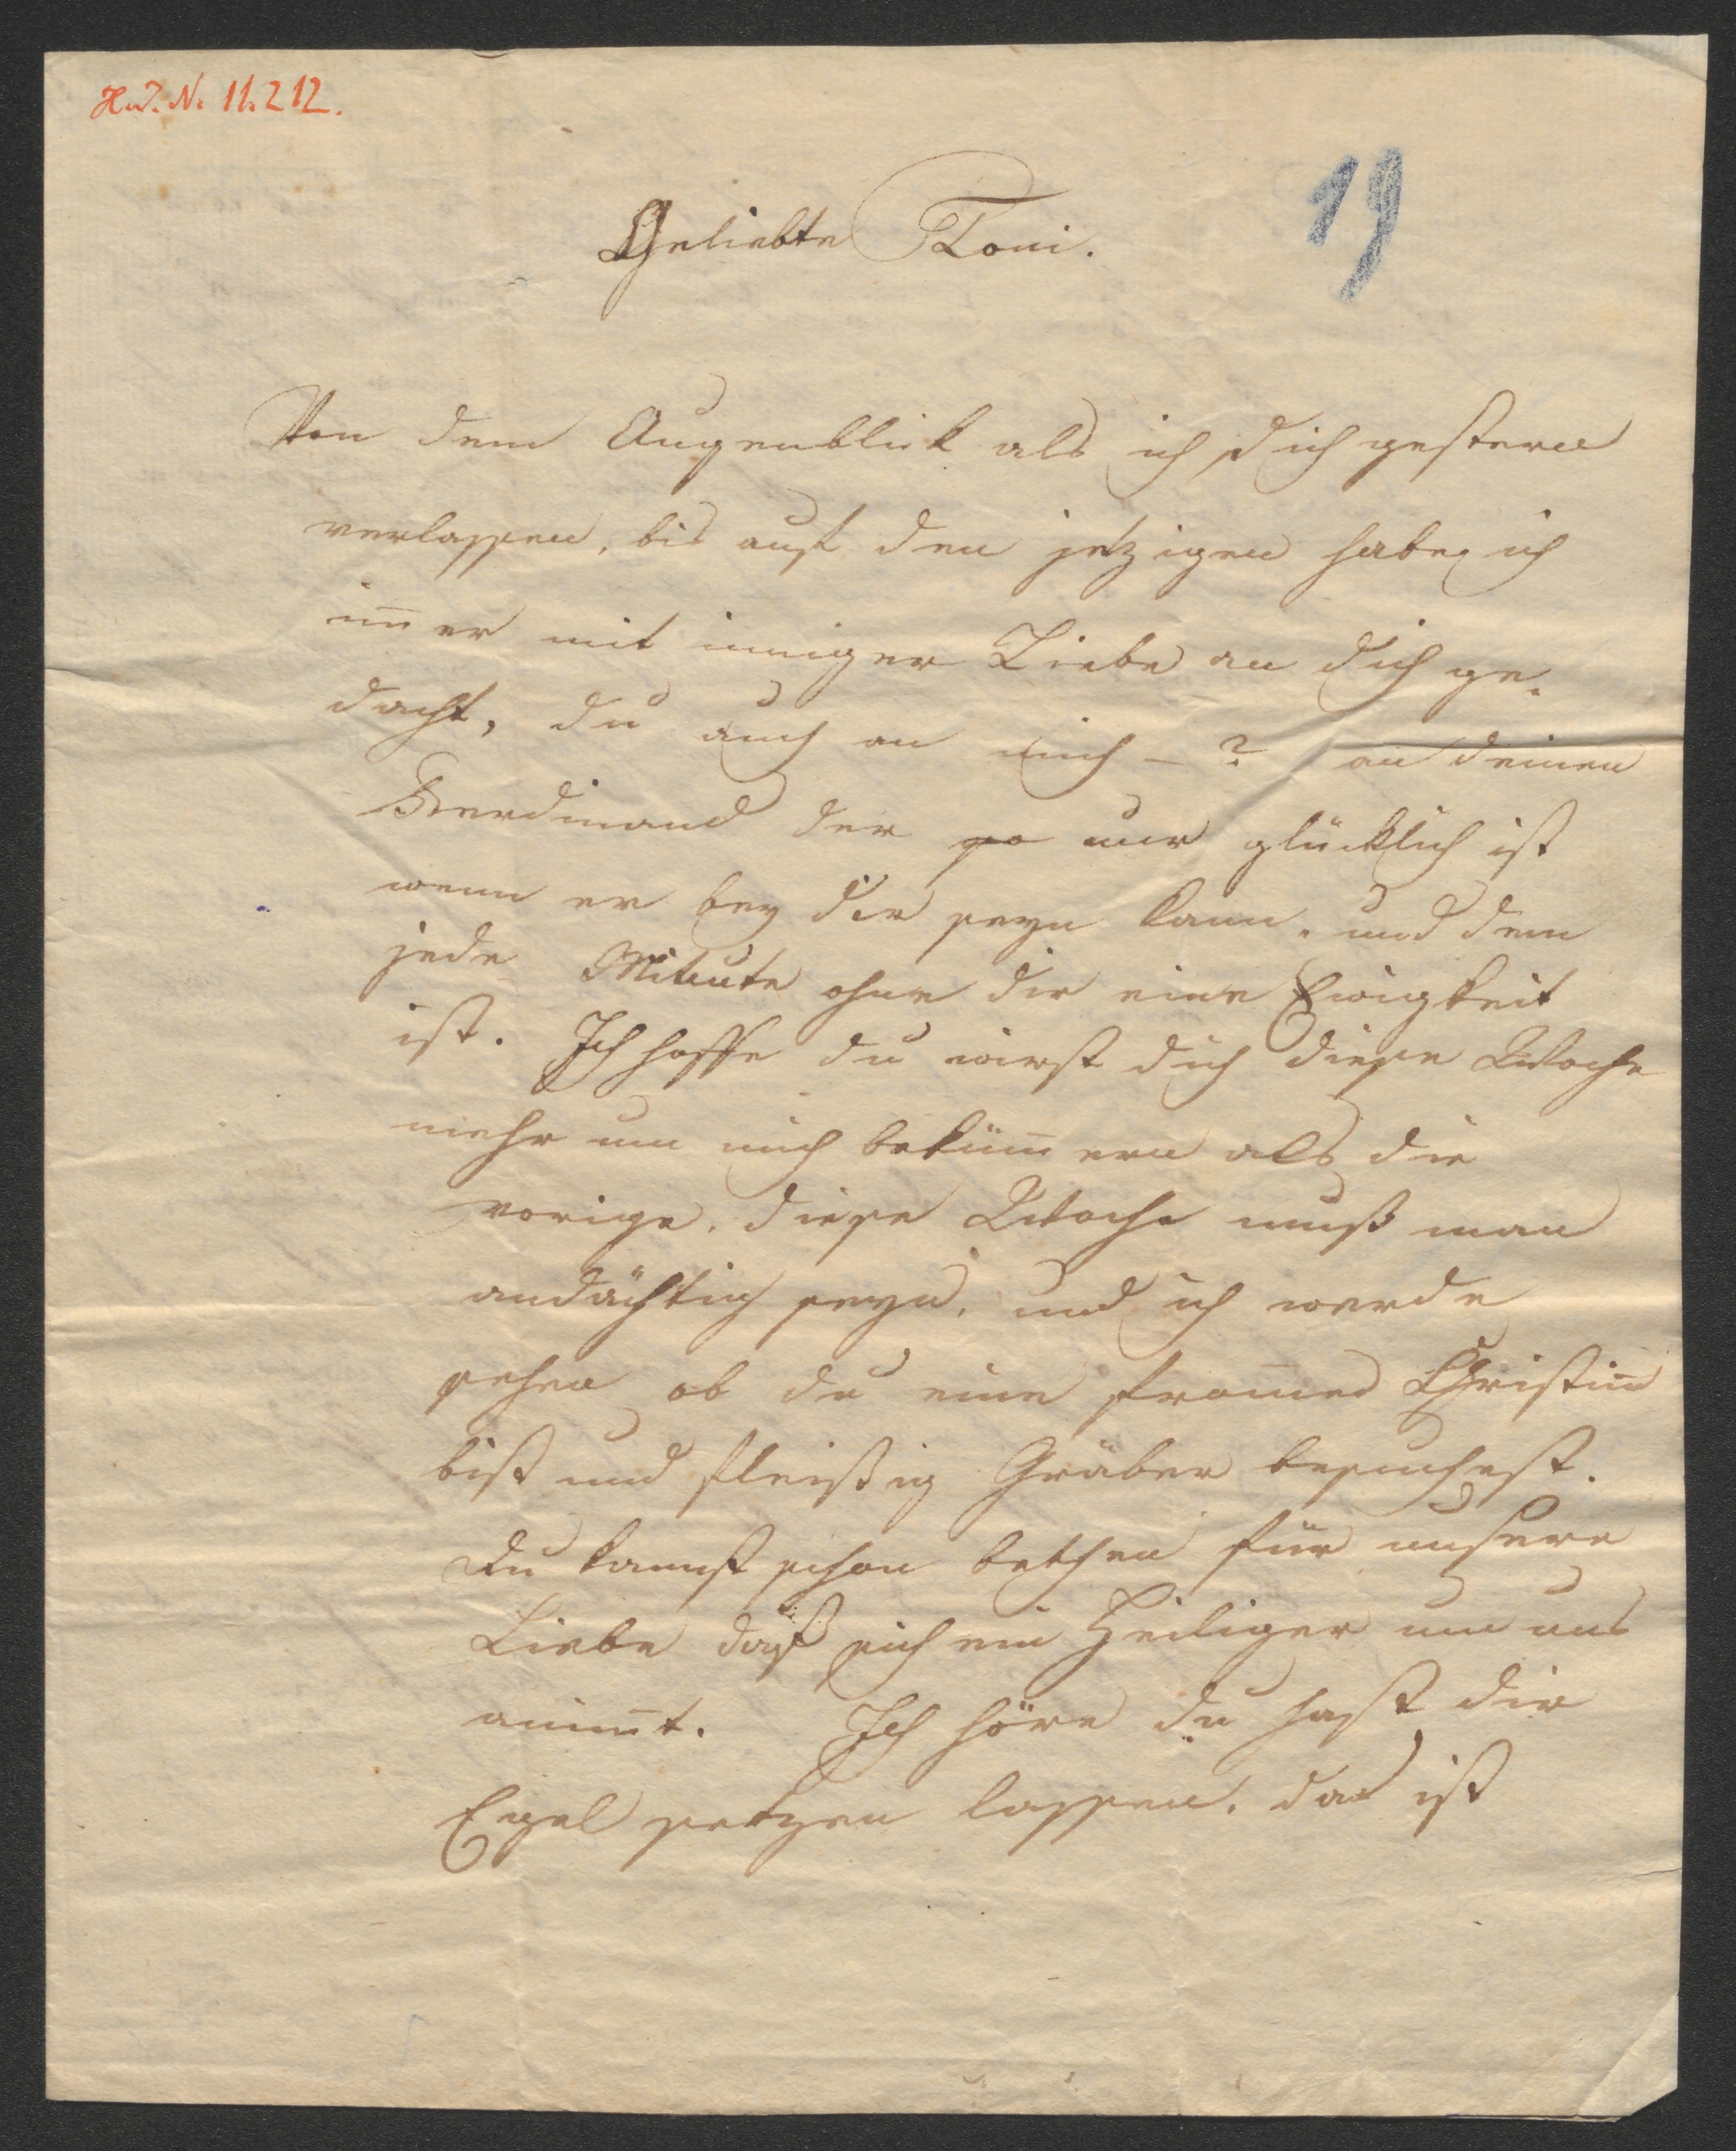 H.I.N. 11.212.
19
Geliebte Toni.
Von dem Augenblick als ich dich gestern
verlassen, bis auf den jetzigen habe ich
im̅er mit inniger Liebe an dich ge-
dacht, du auch an mich – ? an deinen
Ferdinand der so nur glücklich ist
wenn er bey dir seyn kann, und dem
jede Minute ohne dir eine Ewigkeit
ist. Ich hoffe du wirst dich diese Woche
mehr um mich beküm̅ern als die
vorige. diese Woche muß man
andächtig seyn, und ich werde
sehen ob du eine from̅e Christin̅
bist und fleißig Gräber besuchest.
Du kannst schon bethen für unsere
Liebe daß sich ein Heiliger um uns
annim̅t. Ich höre du hast dir
Egel setzen lassen, das ist